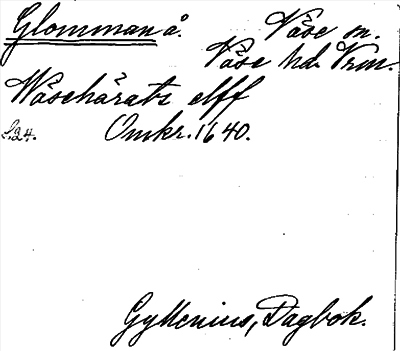 Glomman å. Väse sn.
Väse hd. Vrm.
Wäsehärats elff
S.24. Omkr. 1640.
Gyllenius, Dagbok.